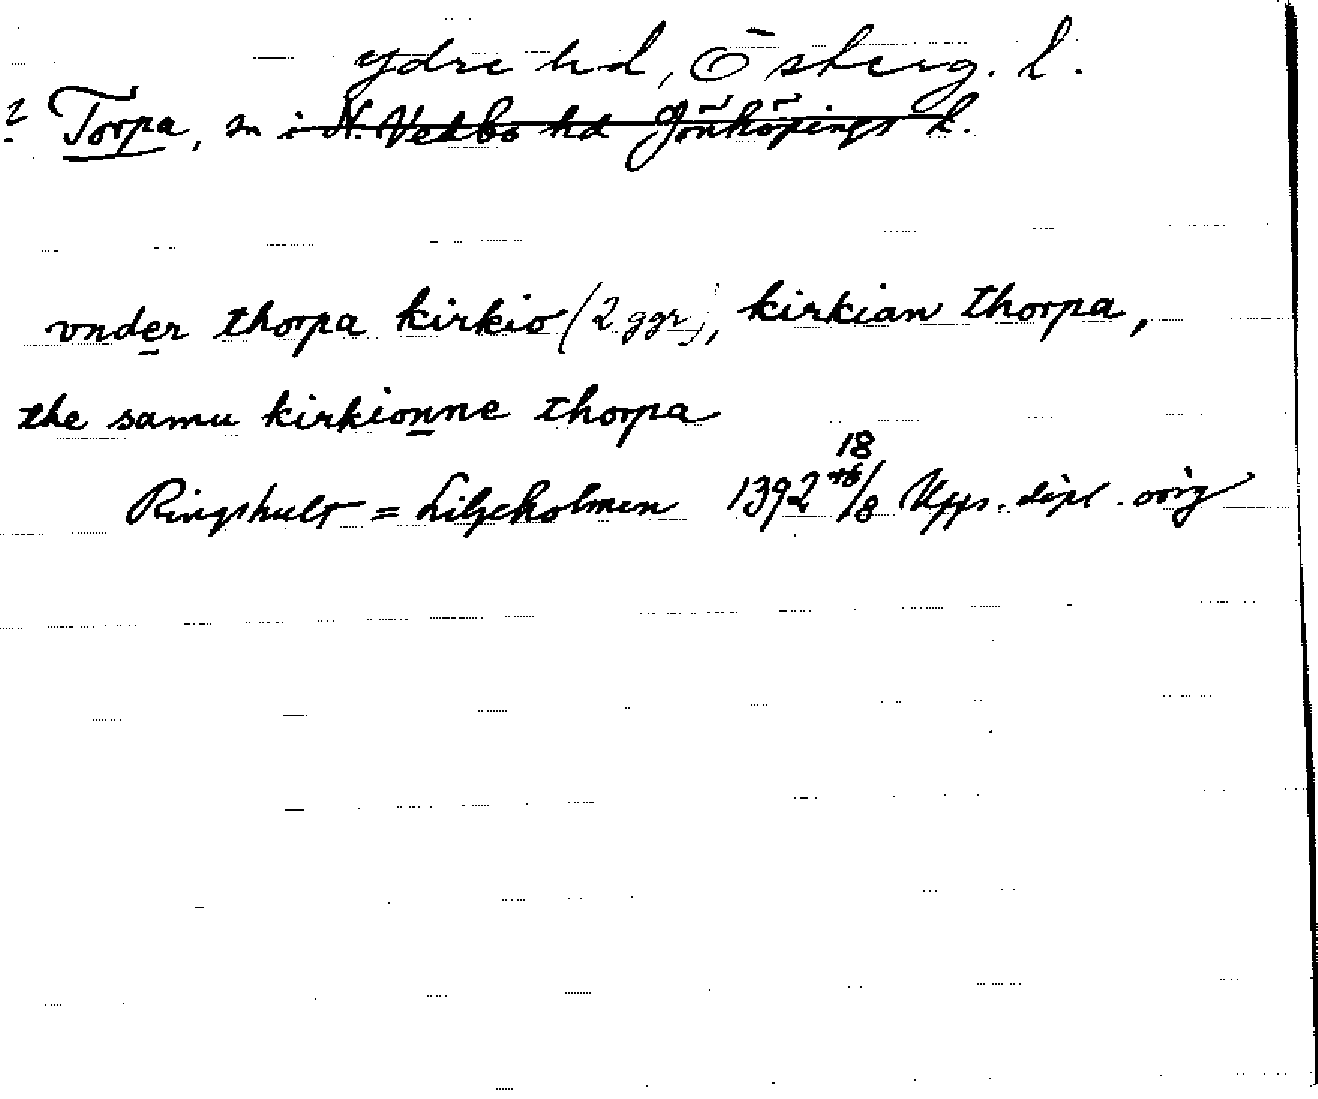 Ydre hd, Österg. l.
2 Torpa, sn i N. Vedbo hd Jönköpings l.
vnder thorpa kirkio (2 ggr), kirkian thorpa,
the samu kirkionne thorpa
18
Ringshult = Liljeholmen 1392 16/8 Upps. dipl. orig